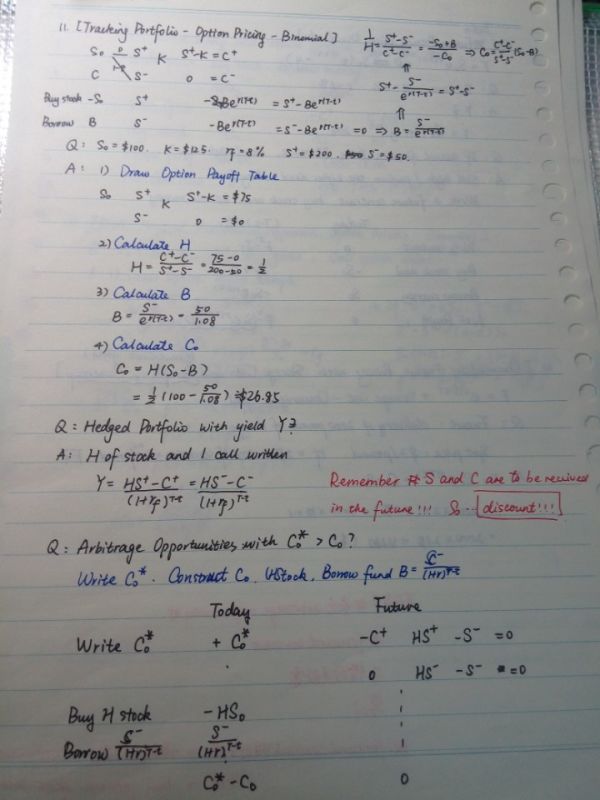 11. [Tracking Portfolio - Option Pricing - Binomial]
S₀ S⁺ K S⁺-K = C⁺
C S⁻ 0 = C⁻
1/H = (S⁺-S⁻)/(C⁺-C⁻) = (-S₀+B)/(-C₀) ⇒ C₀ = (C⁺-C⁻)/(S⁺-S⁻) (S₀-B)
⇑
S⁺ - S⁻/e^r(T-t) = S⁺-S⁻
⇑
Buy stock -S₀ S⁺ -Be^r(T-t) = S⁺-Be^r(T-t)
Borrow B S⁻ -Be^r(T-t) = S⁻-Be^r(T-t) = 0 ⇒ B = S⁻/e^r(T-t)
Q: S₀ = $100. K = $125. rf = 8% S⁺ = $200. S⁻ = $50.
A: 1) Draw Option Payoff Table
S₀ S⁺ K S⁺-K = $75
S⁻ 0 = $0
2) Calculate H
H = (C⁺-C⁻)/(S⁺-S⁻) = (75-0)/(200-50) = 1/2
3) Calculate B
B = S⁻/e^r(T-t) = 50/1.08
4) Calculate C₀
C₀ = H(S₀-B)
= 1/2 (100 - 50/1.08) = $26.85
Q: Hedged Portfolio with yield Y?
A: H of stock and 1 call written
Y = (HS⁺-C⁺)/(1+rf)^T-t = (HS⁻-C⁻)/(1+rf)^T-t
Remember # S and C are to be received
in the future!!! So... discount!!!
Q: Arbitrage Opportunities with C₀* > C₀?
Write C₀*. Construct C₀. HStock. Borrow fund B = S⁻/(1+r)^T-t
Today Future
Write C₀* + C₀* -C⁺ HS⁺ -S⁻ = 0
0 HS⁻ -S⁻ = 0
Buy H stock -HS₀
Borrow S⁻/(1+r)^T-t S⁻/(1+r)^T-t
C₀*-C₀ 0